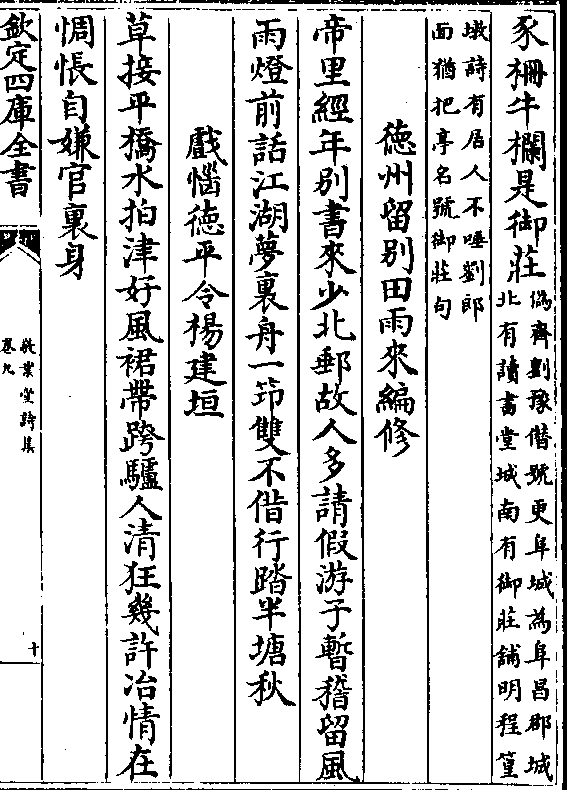 豕柵牛欄是御莊偽齊劉豫僣號更阜城為阜昌郡城
北有讀書堂城南有御莊舖明程篁
墩詩有居人不唾劉郎
面猶把亭名號御莊句
德州留別田雨來編修
帝里經年別書來少北郵故人多請假游子暫稽留風
雨燈前話江湖夢裏舟一笻雙不借行踏半塘秋
戲惱德平令楊建垣
草接平橋水拍津好風裙帶跨驢人清狂幾許冶情在
惆悵自嫌官裏身
欽定四庫全書
敬業堂詩集
卷九
十